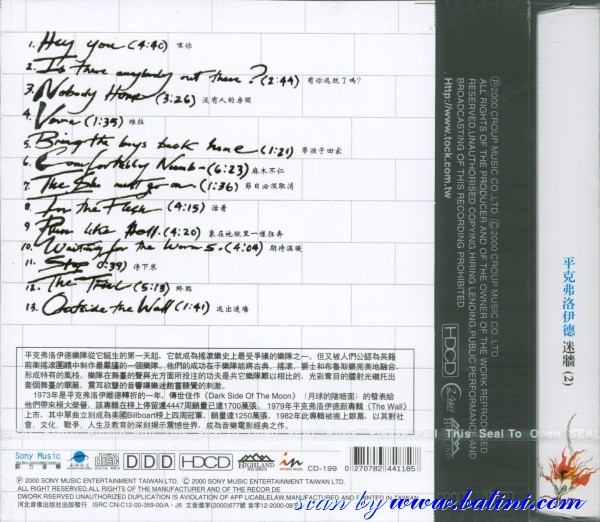 1. Hey you (4:40) 嘿你
2. Is there anybody out there? (2:44) 有你逃脫了嗎?
3. Nobody Home (3:26) 沒有人的房間
4. Vera (1:35) 維拉
5. Bring the boys back home (1:21) 帶孩子回家
6. Comfortably Numb (6:23) 麻木不仁
7. The Show must go on (1:36) 節目必須取消
8. In the Flesh (4:15) 活着
9. Run Like Hell (4:20) 象在地獄里一樣狂奔
10. Waiting for the Worms. (4:04) 期待溫暖
11. Stop 0:39) 停下來
12. The Trial (5:13) 終點
13. Outside the Wall (1:41) 逃出邊墻
平克弗洛伊德樂隊從它誕生的第一天起，它就成為搖滾樂史上最受爭議的樂隊之一。但又被人們公認為英籍
前衛搖滾團體中制作最華麗的一個樂隊。他們的成功在于樂隊將古典、搖滾、爵士和布魯斯樂完美地融合，
形成特有的風格。樂隊在舞臺的聲與光方面所投注的功夫是其它樂隊難以相比的，光彩奪目的鐳射光襯托出
套個舞臺的華麗、震耳欲聾的音響讓樂迷飽嘗聽覺的刺激。
1973年是平克弗洛伊德轉折的一年，傳世佳作《Dark Side Of The Moon》（月球的陰暗面）的發表給
他們帶來極大榮譽，該專輯在榜上停留達4447周銷量已達1700萬張。1979年平克弗洛伊德新專輯《The Wall》
上市，其中單曲立刻成為美國Billboart榜上四周冠軍，銷量達1250萬張。1982年此專輯被搬上銀幕，以其對社
會、文政、戰爭、人生及教育的深刻揭示震憾世界，成為音樂電影經典之作。
Sony Music
新力音樂
DISC
DIGITAL AUDIO
DDD
HDCD
HIGHLAND
RECORDS
CD-199
0 270782 441185
Ⓟ 2000 SONY MUSIC ENTERTAINMENT TAIWAN LTD. © 2000 SONY MUSIC ENTERTAINMENT TAIWAN LTD.
ALL RIGHT RESERVED.ALL RIGHTS OF THE MANUFACTURER AND OF THE RECOR.DE
DWORK RSERVED.UNAUTHORIZED DUPLICATION IS AVIOLATION OF APP LICABLELAW.MANUFACTURED AND PRINTED IN TAIWAN
河北音像出版社出版發行 ISRC CN-C12-00-359-00/A·J6
Ⓟ 2000 CROUP MUSIC CO.,LTD. © 2000 CROUP MUSIC CO.,LTD
ALL RIGHTS OF THE PRODUCER AND OF THE OWNER OF THE WORK REPRODUCED
RESERVED.UNAUTHORISED COPYING,HIRING,LENDING,PUBLIC PERFORMANCE AND
BROADCASTING OF THIS RECORDING PROHIBITED.
Http://www.tock.com.tw
HDCD
This Seal To Open SEAL
平克弗洛伊德 迷牆 (2)
scan by www.batini.com